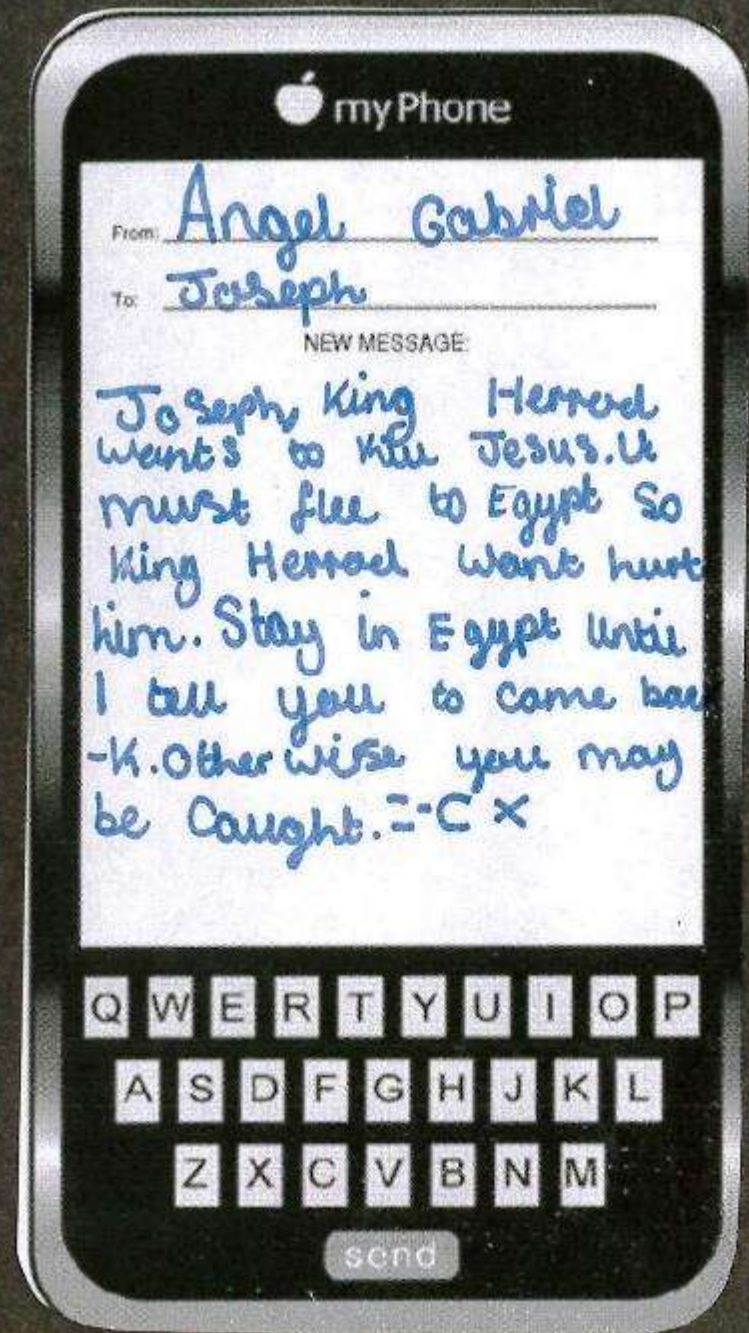 myPhone
From: Angel Gabriel
To: Joseph
NEW MESSAGE:
Joseph King Herrod
wants to kill Jesus. U
must flee to Egypt so
King Herrod wont hurt
him. Stay in Egypt until
I tell you to come bac
-k. Otherwise you may
be Caught. =-C x
Q W E R T Y U I O P
A S D F G H J K L
Z X C V B N M
send